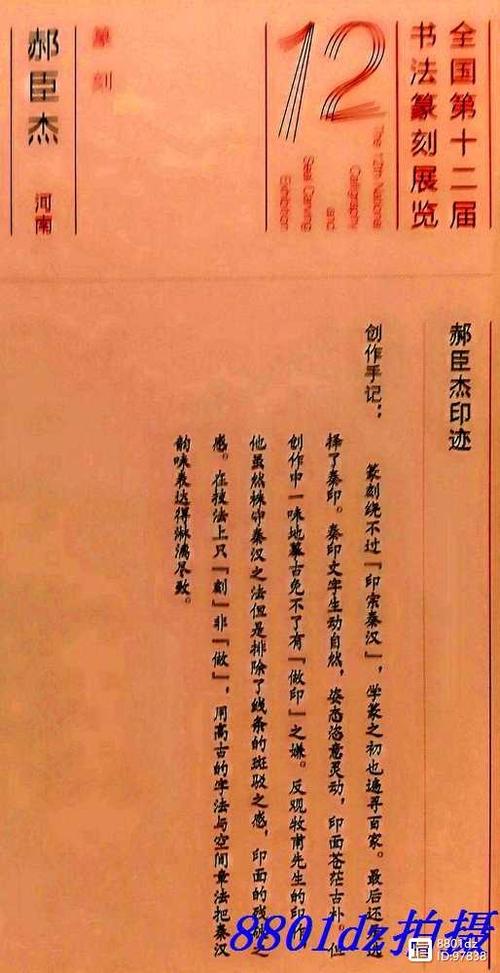 全国第十二届
书法篆刻展览
12
The 12th National
Calligraphy
and
Seal Carving
Exhibition
篆刻
郝臣杰 河南
郝臣杰印迹
创作手记：
篆刻绕不过「印宗秦汉」，学篆之初也遍寻百家。最后还是选
择了秦印。秦印文字生动自然，姿态恣意灵动，印面苍茫古朴。但
创作中一味地摹古免不了有「做印」之嫌。反观牧甫先生的印作
他虽然株守秦汉之法但是排除了线条的斑驳之感，印面的残破之
感。在技法上只「刻」非「做」，用高古的字法与空间章法把秦汉
韵味表达得淋漓尽致。
8801dz拍摄
8801dz
ID:97838